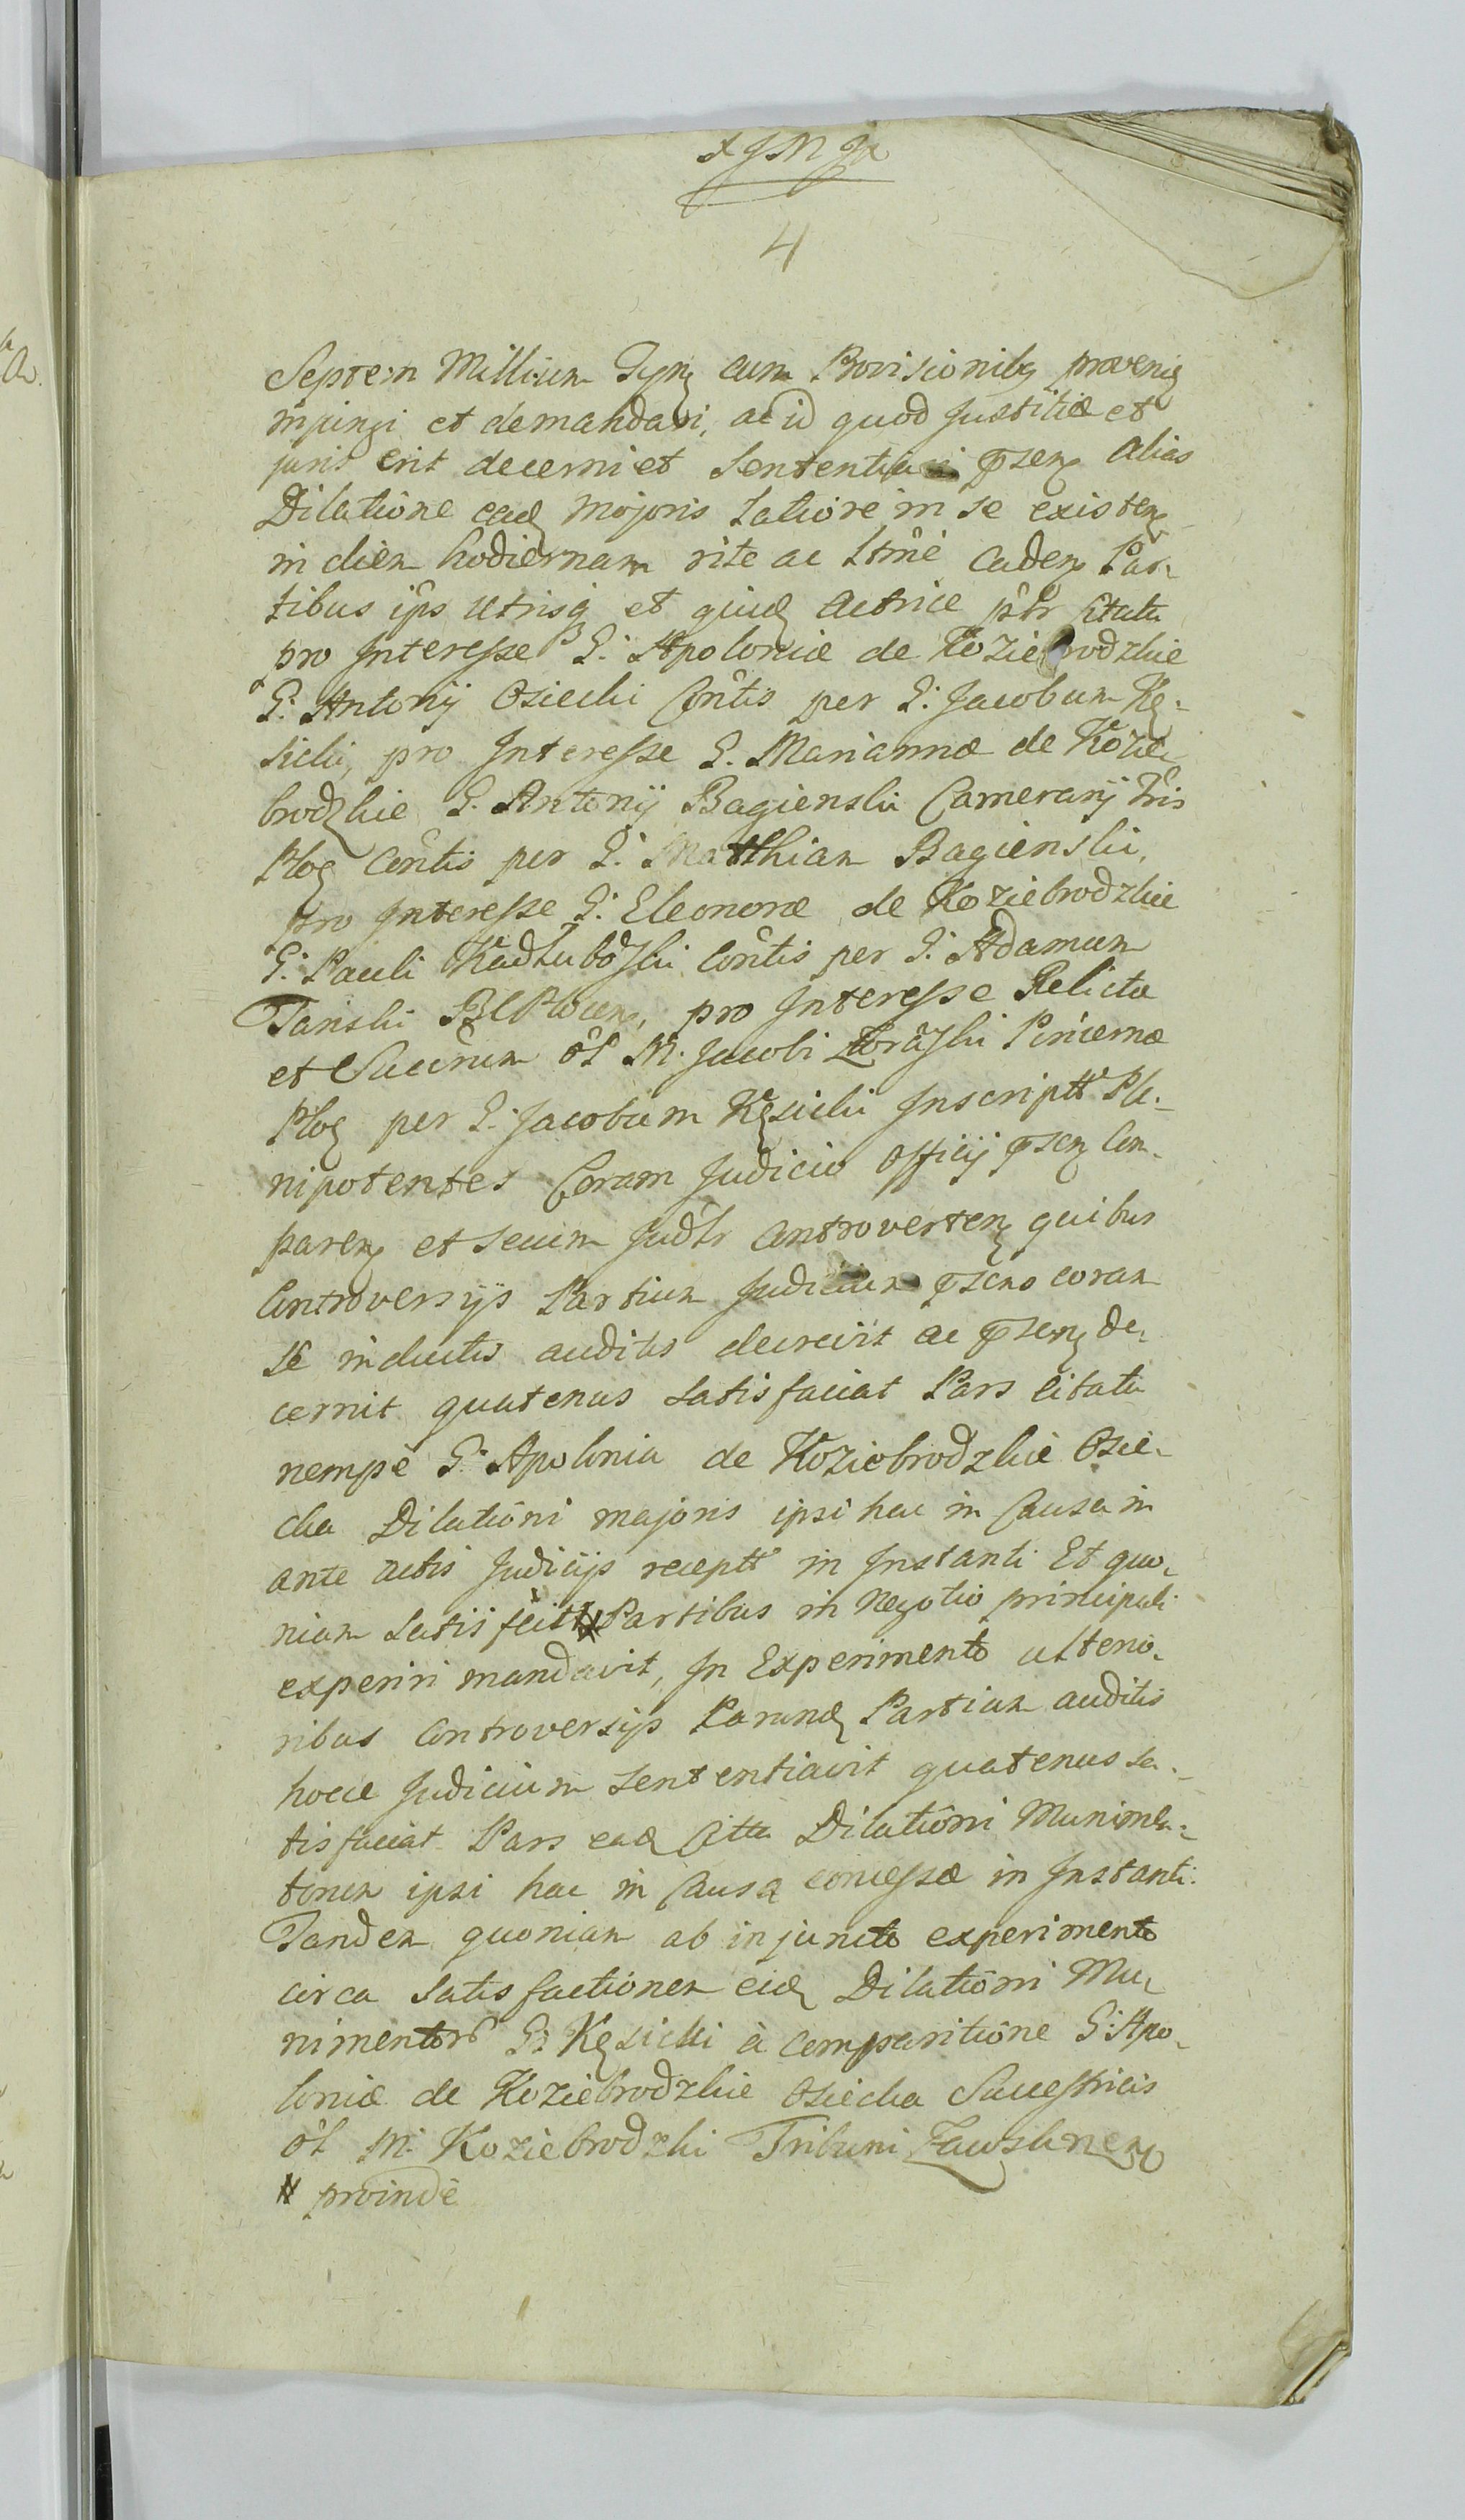 4
Septem Millium Tyn cum Provisionibq provenien
impingi et demandari, ac id quod Justitiæ et
juris erit decerni et Sententiari psen Alias
Dilatione ead majoris Latiore in se existen
in diem hodiernam rite ac ltme caden Par-
tibus ips utrisq et quid Actrice ptr Citata
pro Interesse G. Apoloniæ de Koziebrodzkie
G. Antonij Osiecki Contis per G. Jacobum Kę-
sicki, pro Interesse G. Mariannæ de Kozie
brodzkie G. Antonij Bagienski Camerarij Tris
Ploc Contis per G. Matthiam Bagienski,
pro Interesse G. Eleonoræ de Koziebrodzkie
G. Pauli Kadłubowski Contis per G. Adamum
Tanski, pro Interesse Relictæ
et Succrum ol M. Jacobi Pincernæ
Ploc per G. Jacobum Kęsicki Inscriptt Ple-
nipotentes Coram Judicio Officij psen Com-
paren et secum Judlr Controverten quibus
Controversijs Partium Judicium psens coram
se inductis auditis decrevit ac psen de-
cernit quatenus Satisfaciat Pars citata
nempe G. Apolonia de Koziebrodzkie Osie-
cka Dilationi majoris ipsi hac in Causa in
ante actis Judicijs receptt in Instanti Et quo-
niam Satisfecit # Partibus in Negotio principali
experiri mandavit, In Experimento ulterio-
ribus Controversijs Earund Partium auditis
hocce Judicium Sententiavit quatenus Sa-
tisfaciat Pars ead Citta Dilationi Munimen-
torum ipsi hac in Causa concessæ in Instanti.
Tandem quoniam ab injuncto experimento
circa Satisfactionem eid Dilationi Mu-
nimentor G. Kęsicki à comparitione G. Apo-
loniæ de Koziebrodzkie Osiecka Successricis
ol M. Koziebrodzki Tribuni Zawskrnen
# proinde